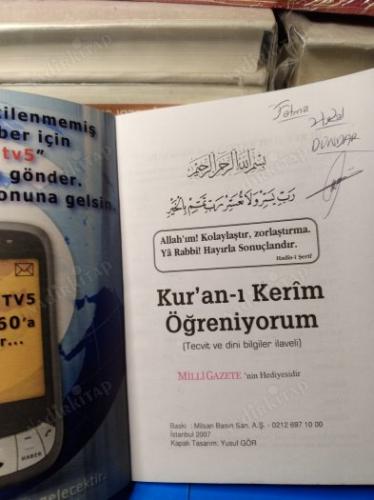 ilenmemiş
ber için
tv5"
gönder.
onuna gelsin.
TV5
60'a
r...
HABER
gelecektir.
Fatma
DÜNDAR
بسم الله الرحمن الرحيم
رب يسر ولا تعسر رب تمم بالخير
Allah'ım! Kolaylaştır, zorlaştırma.
Yâ Rabbi! Hayırla Sonuçlandır.
Hadis-i Şerif
Kur'an-ı Kerîm
Öğreniyorum
(Tecvit ve dini bilgiler ilaveli)
MİLLİ GAZETE 'nin Hediyesidir
Baskı : Milsan Basın San. A.Ş. - 0212 697 10 00
İstanbul 2007
Kapak Tasarım: Yusuf GÖR